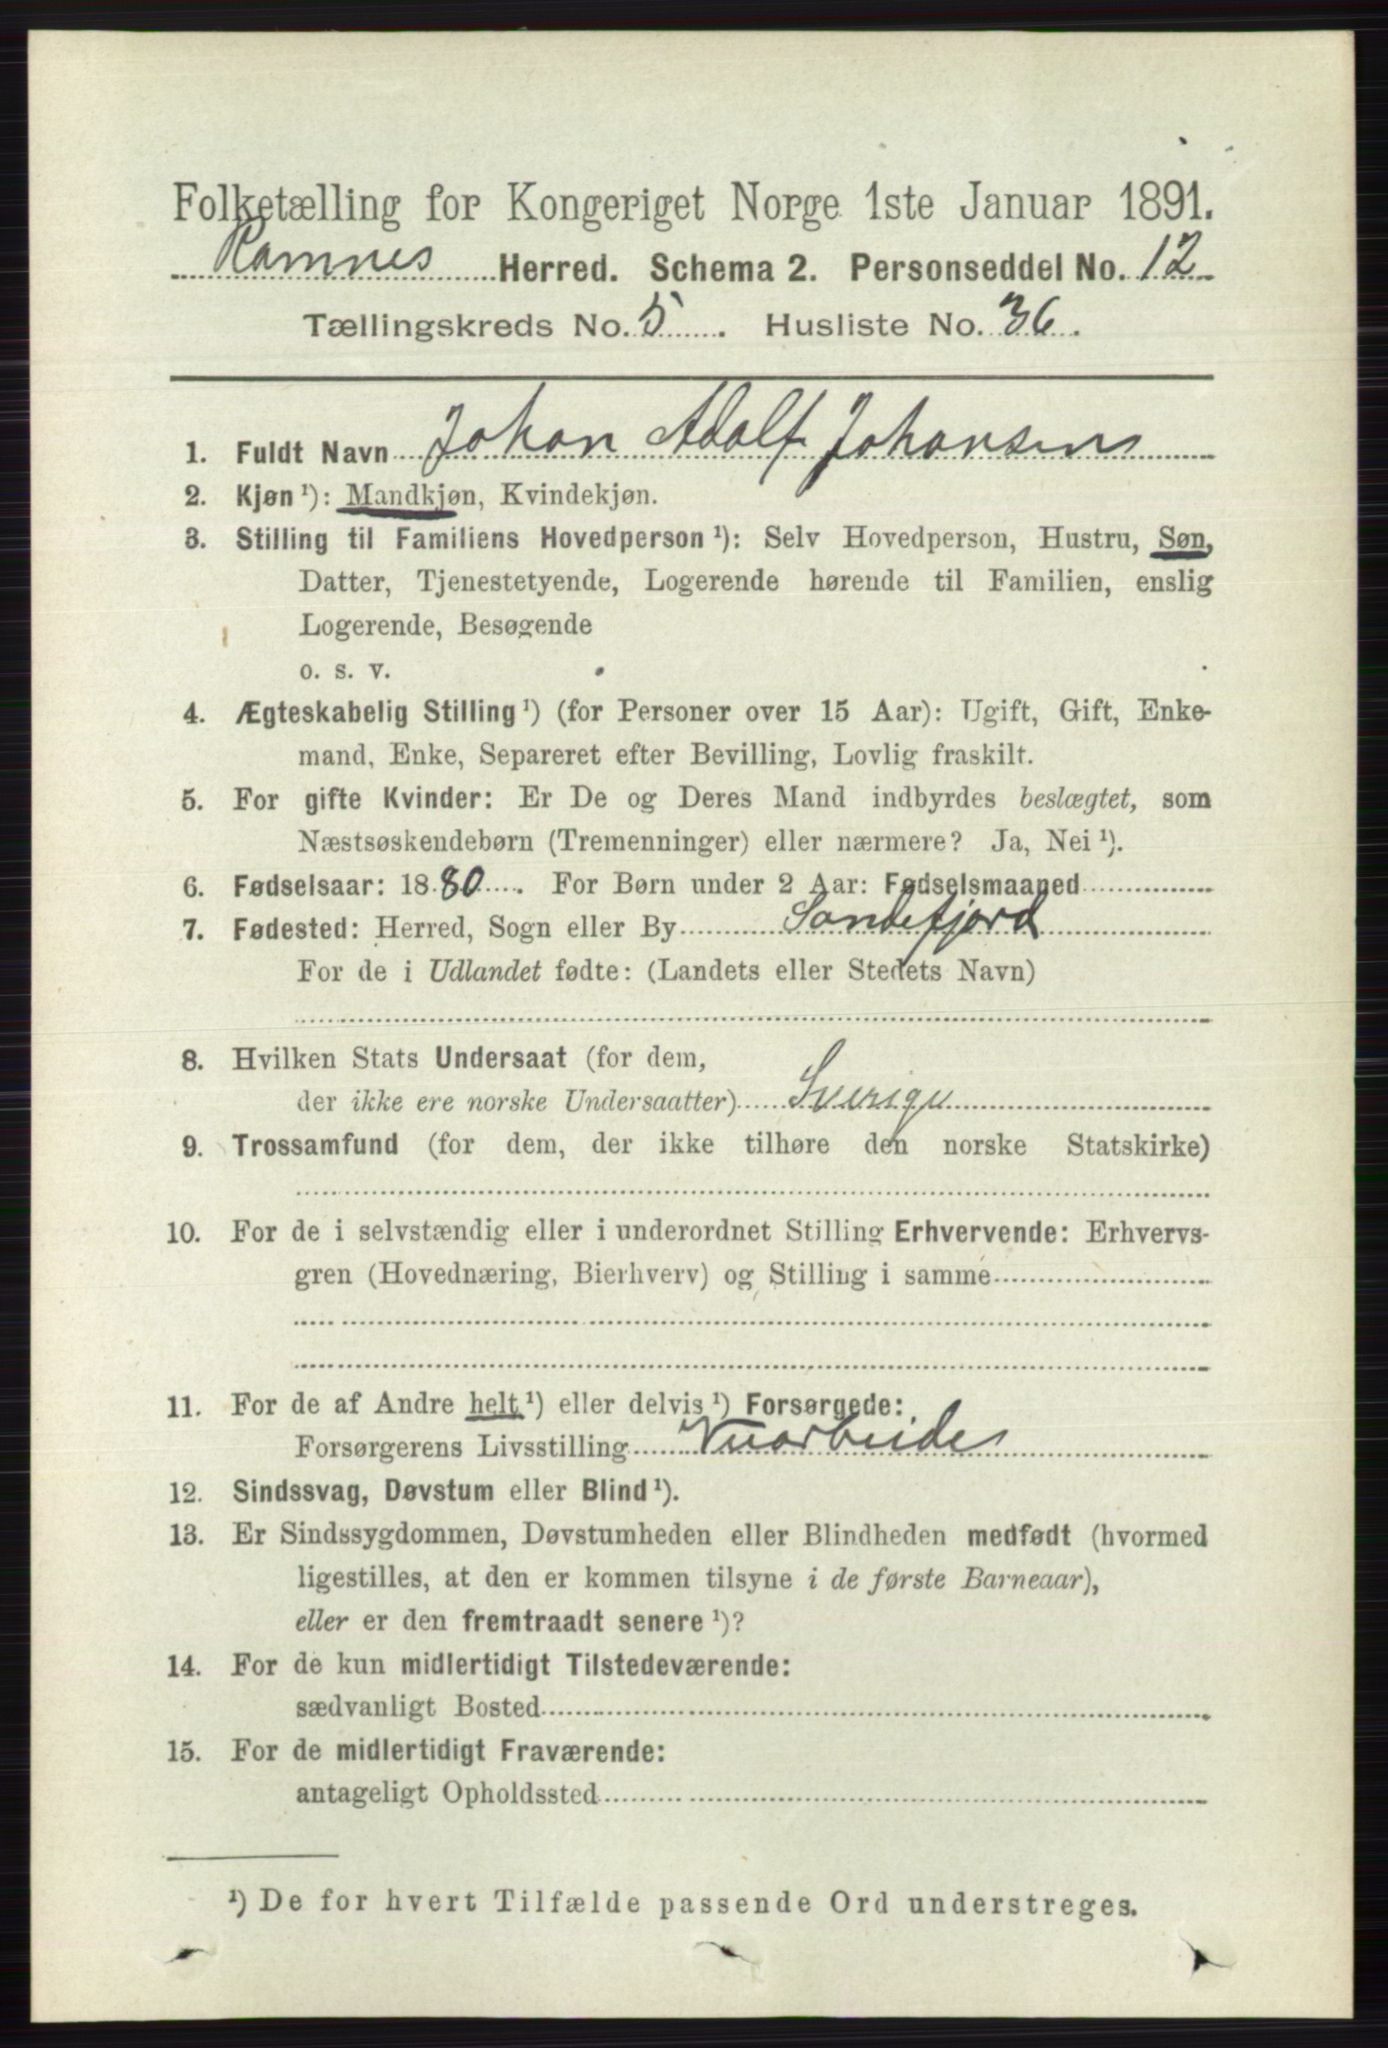 Folketælling for Kongeriget Norge 1ste Januar 1891.
Ramnes Herred. Schema 2. Personseddel No. 12
Tællingskreds No. 5. Husliste No. 36.
1. Fuldt Navn Johan Adolf Johansen
2. Kjøn ¹): Mandkjøn, Kvindekjøn.
3. Stilling til Familiens Hovedperson ¹): Selv Hovedperson, Hustru, Søn,
Datter, Tjenestetyende, Logerende hørende til Familien, enslig
Logerende, Besøgende
o. s. v.
4. Ægteskabelig Stilling ¹) (for Personer over 15 Aar): Ugift, Gift, Enke-
mand, Enke, Separeret efter Bevilling, Lovlig fraskilt.
5. For gifte Kvinder: Er De og Deres Mand indbyrdes beslægtet, som
Næstsøskendebørn (Tremenninger) eller nærmere? Ja, Nei ¹).
6. Fødselsaar: 1880. For Børn under 2 Aar: Fødselsmaaned
7. Fødested: Herred, Sogn eller By Sandefjord
For de i Udlandet fødte: (Landets eller Stedets Navn)
8. Hvilken Stats Undersaat (for dem,
der ikke ere norske Undersaatter) Sverige
9. Trossamfund (for dem, der ikke tilhøre den norske Statskirke)
10. For de i selvstændig eller i underordnet Stilling Erhvervende: Erhvervs-
gren (Hovednæring, Bierhverv) og Stilling i samme
11. For de af Andre helt ¹) eller delvis ¹) Forsørgede:
Forsørgerens Livsstilling
12. Sindssvag, Døvstum eller Blind ¹).
13. Er Sindssygdommen, Døvstumheden eller Blindheden medfødt (hvormed
ligestilles, at den er kommen tilsyne i de første Barneaar),
eller er den fremtraadt senere ¹)?
14. For de kun midlertidigt Tilstedeværende:
sædvanligt Bosted
15. For de midlertidigt Fraværende:
antageligt Opholdssted
¹) De for hvert Tilfælde passende Ord understreges.